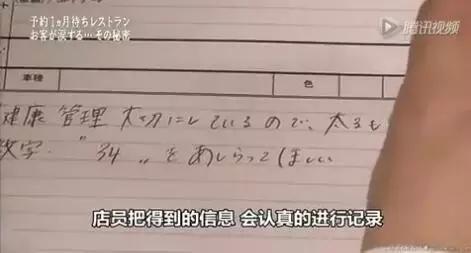 予約1ヵ月待ちレストラン
お客が涙する…その秘密
腾讯视频
車種
色
健康管理 大切にしているので、太るも
数字 "34" をあしらってほしい
店员把得到的信息 会认真的进行记录